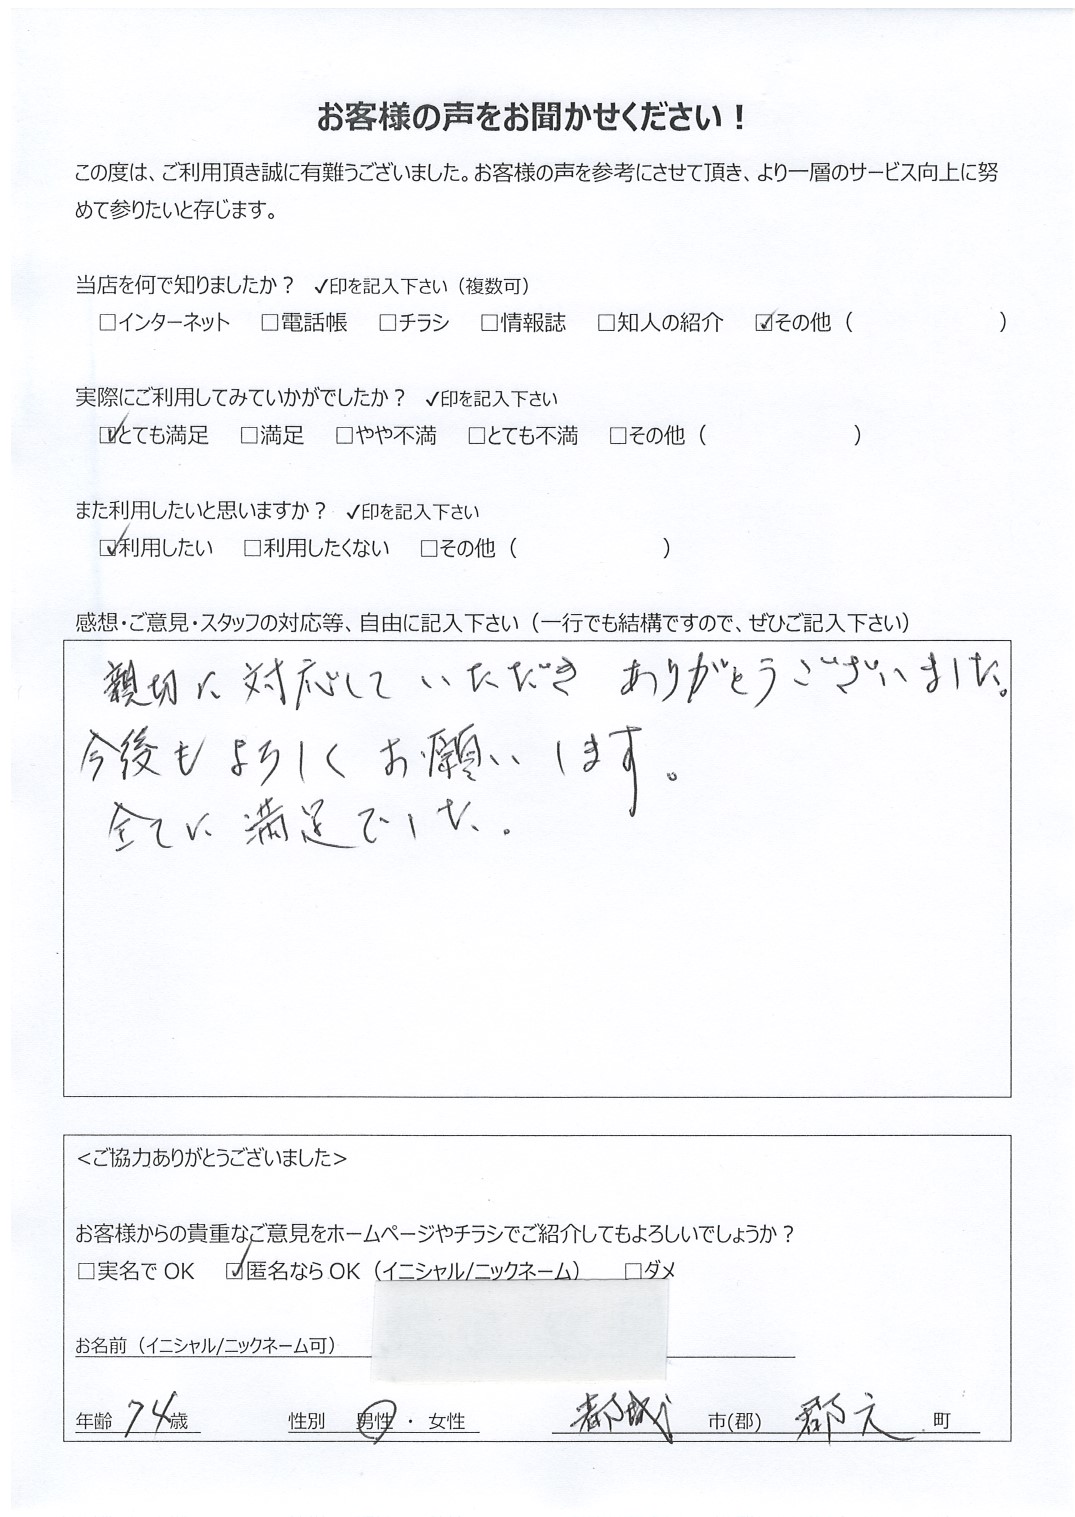 お客様の声をお聞かせください！
この度は、ご利用頂き誠に有難うございました。お客様の声を参考にさせて頂き、より一層のサービス向上に努
めて参りたいと存じます。
当店を何で知りましたか？ ✓印を記入下さい（複数可）
□インターネット □電話帳 □チラシ □情報誌 □知人の紹介 ☑その他（ ）
実際にご利用してみていかがでしたか？ ✓印を記入下さい
☑とても満足 □満足 □やや不満 □とても不満 □その他（ ）
また利用したいと思いますか？ ✓印を記入下さい
☑利用したい □利用したくない □その他（ ）
感想・ご意見・スタッフの対応等、自由に記入下さい（一行でも結構ですので、ぜひご記入下さい）
親切に対応していただき ありがとうございました。
今後もよろしくお願いします。
全てに満足でした。
<ご協力ありがとうございました>
お客様からの貴重なご意見をホームページやチラシでご紹介してもよろしいでしょうか？
□実名でOK ☑匿名ならOK（イニシャル/ニックネーム） □ダメ
お名前（イニシャル/ニックネーム可）
年齢 74歳 性別 男性 ・ 女性 都城 市(郡) 郡元 町